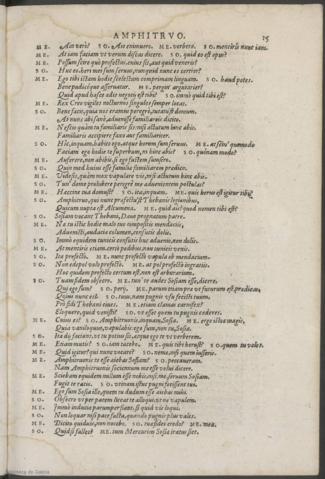 AMPHITRVO. 15
ME. Ain vero? SO. Aio enimuero. ME. verbero. SO. mentiris nunc iam.
ME. At iam faciam vt verum dicas dicere. SO. quid eo est opus?
ME. Possum scire quò profectus, cuius sis, aut quid veneris?
SO. Huc eo. heri mei sum seruus, nunquid nunc es certior?
ME. Ego tibi istam hodie scelestam comprimam linguam. SO. haud potes.
Bene pudicéque asseruatur. ME. pergin' argutarier?
Quid apud hasce ædes negotij est tibi? SO. immò quid tibi est?
ME. Rex Creo vigiles nocturnos singulos semper locat.
SO. Bene facit, quia nos eramus peregrè, tutatu'st domum.
At nunc abi sanè, aduenisse familiares dicito.
ME. Nescio quàm tu familiaris sis: nisi actutum hinc abis,
Familiaris accipiere faxo haud familiariter.
SO. Hîc, inquam, habito ego, atque horum sum seruus. ME. at scin' quomodo
Faciam ego hodie te superbum, ni hinc abis? SO. quónam modo?
ME. Auferere, non abibis, si ego fustem sumsero.
SO. Quin med huius esse familiæ familiarem prædico.
ME. Vide sis, quàm mox vapulare vis, nisi actutum hinc abis.
SO. Tun' domo prohibere peregrè me aduenientem postulas?
ME. Hæccine tua domus'st? SO. ita, inquam. ME. quis herus est igitur tibi?
SO. Amphitruo, qui nunc præfectu'st Thebanis legionibus,
Quicum nupta est Alcumena. ME. quid ais? quid nomen tibi est?
SO. Sosiam vocant Thebani, Dauo prognatum patre.
ME. Næ tu istic hodie malo tuo compositis mendaciis,
Aduenisti, audaciæ columen, consutis dolis.
SO. Immò equidem tunicis consutis huc aduenio, non dolis.
ME. At mentiris etiam: certò pedibus, non tunicis venis.
SO. Ita profectò. ME. nunc profectò vapula ob mendacium.
SO. Non edepol volo profectò. ME. at pol profectò ingratiis.
Hoc quidem profectò certum est, non est arbitrarium.
SO. Tuam fidem obsecro. ME. tun' te audes Sosiam esse, dicere,
Qui ego sum? SO. perij. ME. parum etiam præ vt futurum est, prædicas,
Quoius nunc es? SO. tuus, nam pugnis vsu fecisti tuum.
Pró fidē Thebani ciues. ME. etiam clamas carnufex?
Eloquere, quid venisti? SO. vt esset quem tu pugnis cæderes.
ME. Cuius es? SO. Amphitruonis, inquam, Sosia. ME. ergo istoc magis,
Quia vaniloquus, vapulabis: ego sum, non tu, Sosia.
SO. Ita dij faciant, vt tu potius sis, atque ego te vt verberem.
ME. Etiam mutis? SO. iam tacebo. ME. quis tibi herus'st? SO. quem tu voles.
ME. Quid igitur? qui nunc vocare? SO. nemo, nisi quem iusseris.
ME. Amphitruonis te esse aiebas Sosiam? SO. peccaueram.
Nam Amphitruonis socienum me esse volui dicere.
ME. Sciebam equidem nullum esse nobis, nisi me, seruum Sosiam.
Fugit te ratio. SO. vtinam istuc pugni fecissent tui.
ME. Ego sum Sosia ille, quem tu dudum esse aiebas mihi.
SO. Obsecro vt per pacem liceat te alloqui, vt ne vapulem.
ME. Immò induciæ parumper fiant, si quid vis loqui.
SO. Non loquar nisi pace facta, quando pugnis plus vales.
ME. Dicito quiduis, non nocebo. SO. tuæ fidei credo? ME. meæ.
SO. Quid si falles? ME. tum Mercurius Sosiæ iratus siet.